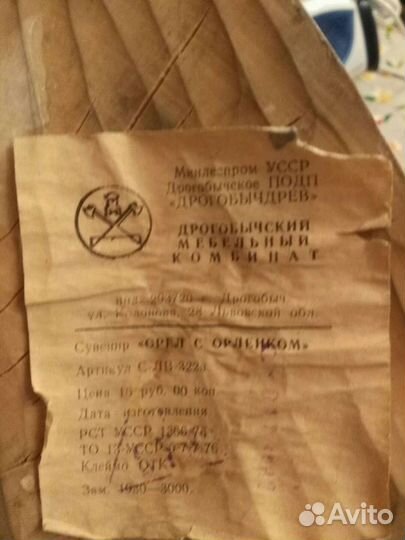 Минлеспром УССР
Дрогобычское ПОДП
«ДРОГОБЫЧДРЕВ»
ДРОГОБЫЧСКИЙ
МЕБЕЛЬНЫЙ
КОМБИНАТ
293720 г. Дрогобыч
ул. 28 Львовской обл.
Сувенир «ОРЕЛ С ОРЛЕНКОМ»
Артикул С-ЛВ-3223
Цена 15 руб. 00 коп.
Дата изготовления
РСТ УССР 1366-74
ТО 13 УССР
Клеймо ОТК
Зам. 1980—3000.
Avito